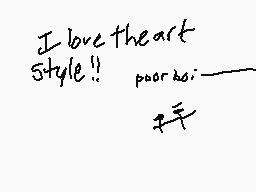 I love the art
style!!
poor boi